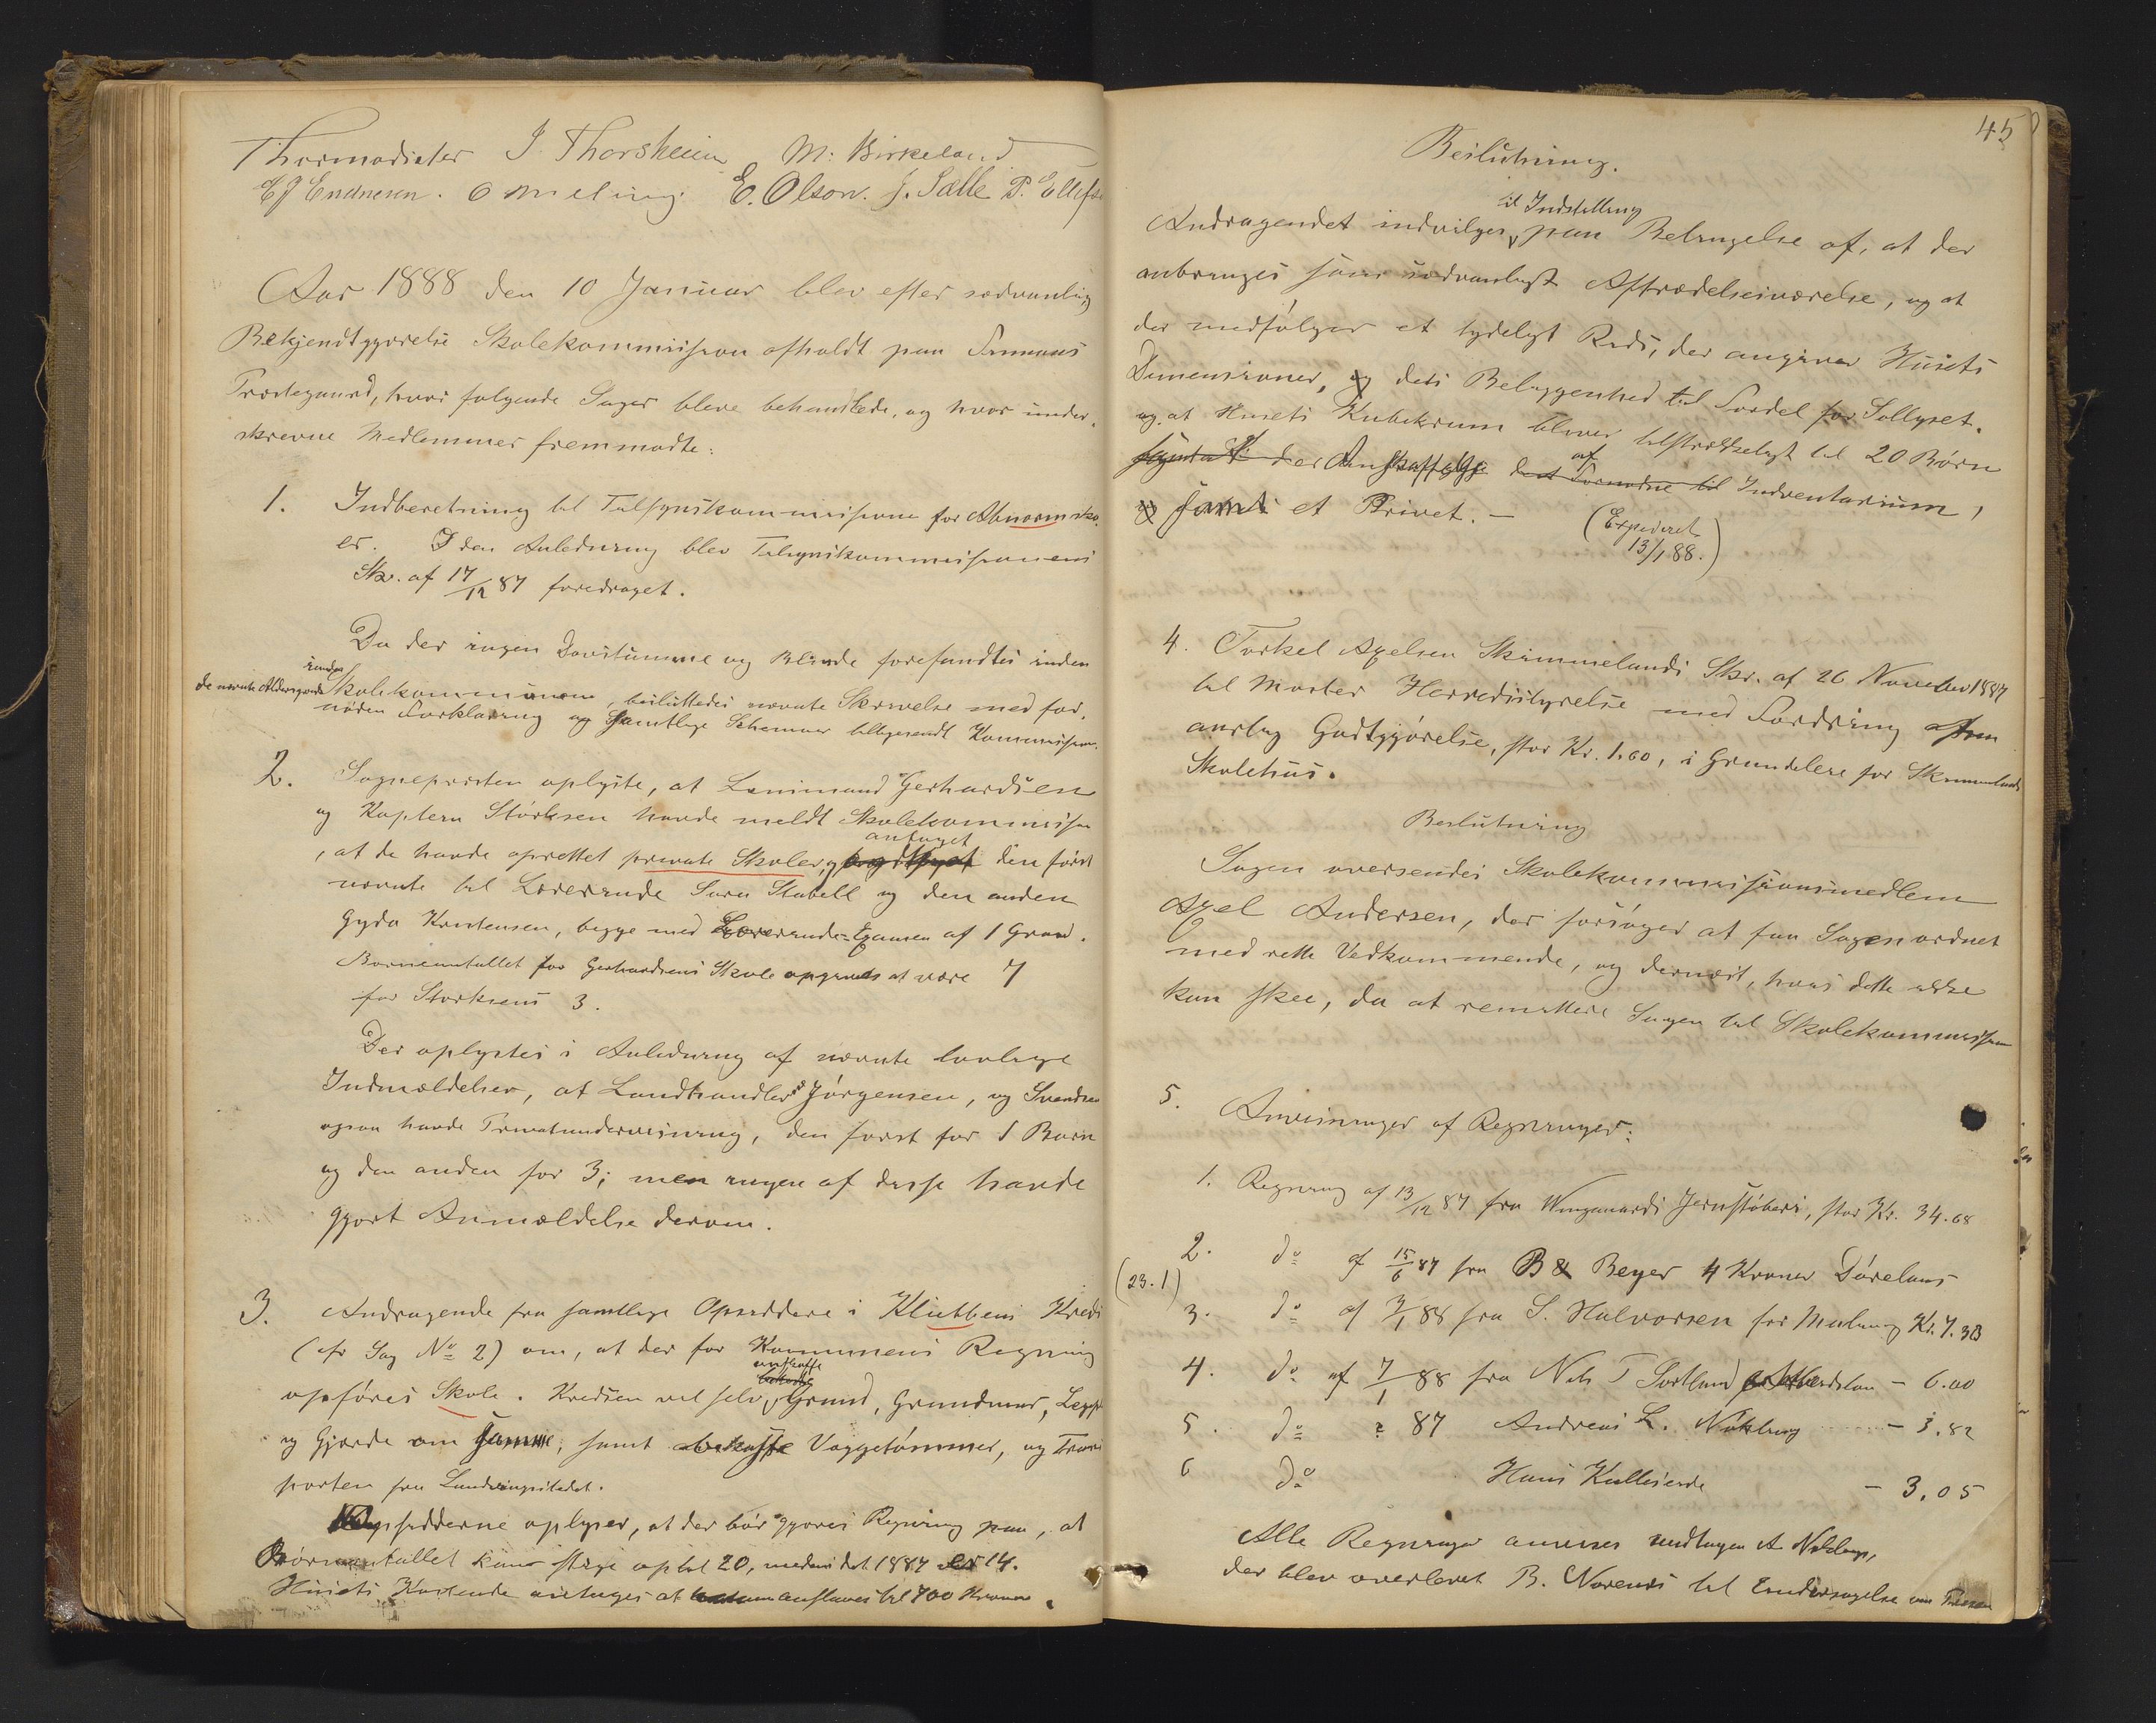 Thormodsæter J. Thorsheim M. Birkeland
E J Endresen. O Meling. E. Olson. J. Sælle P. Ellefsen
Aar 1888 den 10 Januar blev efter sædvanlig
Bekjendtgjørelse Skolekommission afholdt paa Fammæs
Præstegaard, hvor følgende Sager bleve behandlede, og hvor under-
skrevne Medlemmer fremmødte:
1. Indberetning til Tilsynskommissionen for Abnormsko-
er. I den Anledning blev Tilsynskommissionens
Skr. af 17/12 87 foredraget.
Da der ingen Døvstumme og Blinde forefandtes inden
inden
de nævnte Aldersgrændser Skolekommunen, besluttedes nævnte Skrivelse med for-
nøden Forklaring og samtlige Schemaer tilbagesendt Kommission.
2. Sognepresten oplyste, at Lensmand Gerhardsen
og Kaptein Størksen havde meldt Skolekommission
antaget
, at de havde oprettet private Skoler, og den først
nævnte til Lærerinde Sara Stabell og den anden
Gyda Kristensen, begge med Lærerinde-Examen af 1 Grad.
Børneantallet for Gerhardsens Skole opgaves at være 7
for Størksens 3.
Der oplystes i Anledning af nævnte lovlige
Indmældelser, at Landhandler Jørgensen, og Svendsen
ogsaa havde Privatundervisning, den først for 1 Barn
og den anden for 3; men ingen af disse havde
gjort Anmældelse derom.
3. Andragende fra samtlige Opsiddere i Klietbens Kreds
(cfr Sag No 2) om, at der for Kommunens Regning
anskaffe
opføres Skole. Kredsen vil selv Grund, Grundmur,
og Gjærde om samme, samt anskaffe Væggetømmer, og Trans
porten fra Landingsstedet.
Opsidderne oplyser, at der bør gjøres Regning paa, at
Børneantallet kan stige op til 20, medens det 1887 er 14.
Husets Kostende antages at anslaaes til 700 Kroner.
45
Beslutning.
til Indstilling
Andragendet indvilges, paa Betingelse af, at der
anbringes saavel sædvanligt Aftrædelsesværelse, og at
der medfølger et tydeligt Rids, der angiver Husets
Dimensioner, og dets Beliggenhed til Fordel for Sollyset.
og at Husets Kubikrum bliver tilstrækkeligt til 20 Børn
af
der Anskaffelse det Fornødne til Inventarium,
samt et Privet. — (Expederet
13/1 88.)
4. Torkel Axelsen Skimmelands Skr. af 26 November 1887
til Moster Herredsstyrelse med Fordring
aarlig Godtgjørelse, stor Kr. 1.60, i Grundleie for Skimmelands
Skolehus.
Beslutning
Sagen oversendes Skolekommissionsmedlem
Axel Andersen, der forsøger at faa Sagen ordnet
med rette Vedkommende, og dernæst, hvis dette ikke
kan skee, da at remittere Sagen til Skolekommission
5. Anvisninger af Regninger:
1. Regning af 13/12 87 fra Wingaards Jernstøberi, stor Kr. 34.68
2. do af 15/6 87 fra B & Beyer 4 Kroner Dørelaas
(23.1)
3. do af 3/1 88 fra S. Halvorsen for Maling Kr. 7.38
4. do af 7/1 88 fra Nils T Sortland — 6.00
5. do ? 87 Andreas L. Nøkling — 3.82
6 do Hans Kulleseide — 3.05
Alle Regninger anvises undtagen A Nøkling,
der blev overleveret B. Vorenes til Undersøgelse om Prisen